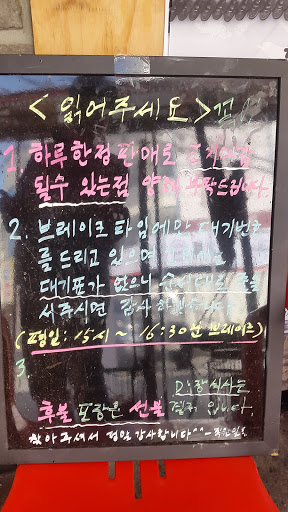 <읽어주세요>
1. 하루 한정 판매로
될수 있는점 양해 부탁드립니다.
2. 브레이크 타임에만 대기번호
를 드리고 있으며
대기표가 없으니 순서대로 줄을
서주시면 감사하겠습니다
(평일: 15시 ~ 16:30분 브레이크)
3.
매장식사는
후불 포장은 선불 결제 입니다.
찾아주셔서 정말 감사합니다^^